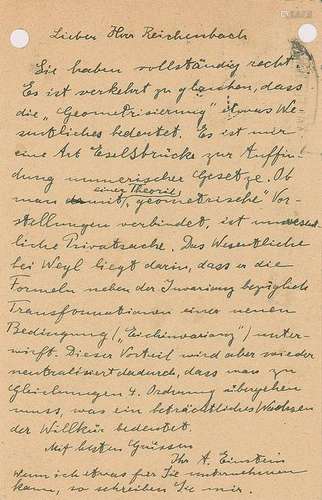 Lieber Herr Reichenbach
Sie haben vollständig recht.
Es ist verkehrt zu glauben, dass
die "Geometrisierung" etwas We-
sentliches bedeutet. Es ist nur
eine Art Eselsbrücke zur Auffin-
dung numerischer Gesetze. Ob
man mit einer Theorie "geometrische" Vor-
stellungen verbindet, ist unwesent-
liche Privatsache. Das Wesentliche
bei Weyl liegt darin, dass er die
Formeln neben der Invarianz bezüglich
Transformationen einer neuen
Bedingung ("Eichinvarianz") unter-
wirft. Dieser Vorteil wird aber wieder
neutralisiert dadurch, dass man zu
Gleichungen 4. Ordnung übergehen
muss, was ein beträchtliches Wachsen
der Willkür bedeutet.
Mit besten Grüssen
Ihr A. Einstein
Wenn ich etwas für Sie unternehmen
kann, so schreiben Sie mir.